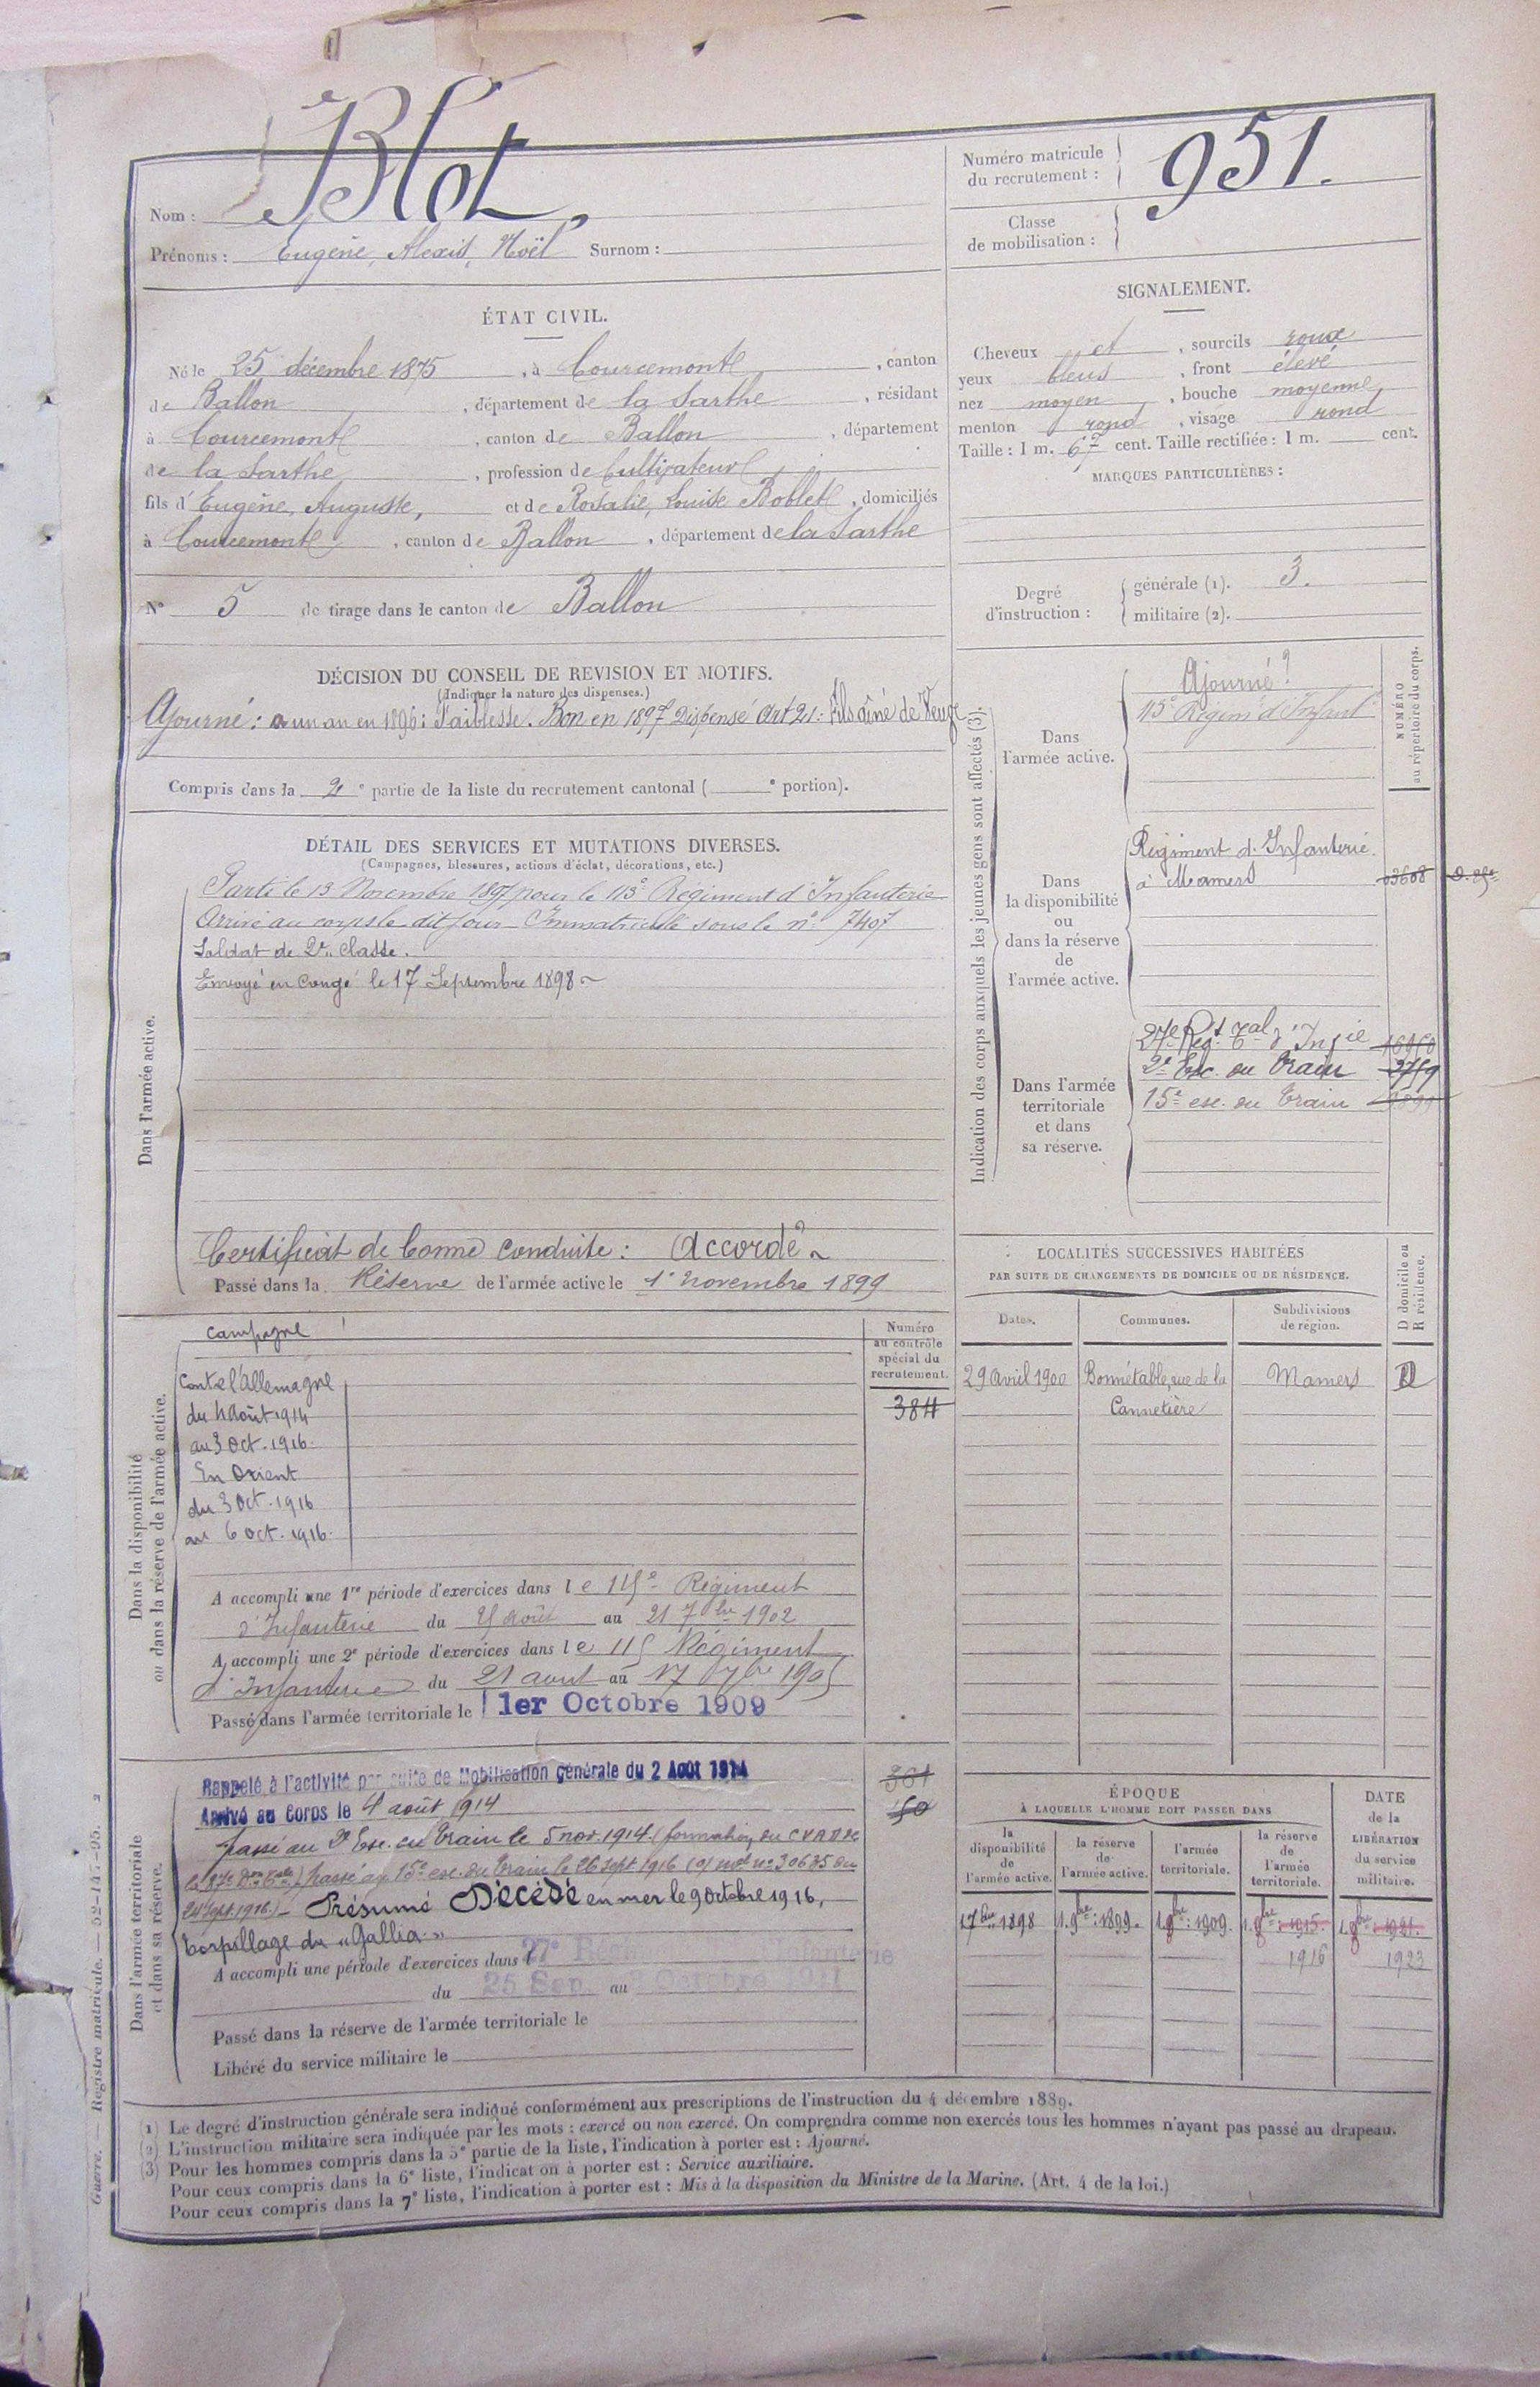 Nom : Blot,
Prénoms : Eugène, Alexis, Noël Surnom :
Numéro matricule du recrutement : 951.
Classe de mobilisation :
ÉTAT CIVIL.
Né le 25 décembre 1875, à Courcemont, canton
de Ballon, département de la Sarthe, résidant
à Courcemont, canton de Ballon, département
de la Sarthe, profession de Cultivateur
fils d'Eugène, Auguste, et de Rosalie, Louise Boblet, domiciliés
à Courcemont, canton de Ballon, département de la Sarthe
N° 5 de tirage dans le canton de Ballon
SIGNALEMENT.
Cheveux et, sourcils roux
yeux bleus, front élevé
nez moyen, bouche moyenne,
menton rond, visage rond
Taille : 1 m. 67 cent. Taille rectifiée : 1 m. cent.
MARQUES PARTICULIÈRES :
Degré d'instruction : générale (1). 3.
militaire (2).
DÉCISION DU CONSEIL DE REVISION ET MOTIFS.
(Indiquer la nature des dispenses.)
Ajourné : a un an en 1896 : Faiblesse. Bon en 1897 Dispensé Art 21 : Fils aîné de Veuve
Compris dans la 2e partie de la liste du recrutement cantonal ( e portion).
DÉTAIL DES SERVICES ET MUTATIONS DIVERSES.
(Campagnes, blessures, actions d'éclat, décorations, etc.)
Dans l'armée active.
Parti le 13 Novembre 1897 pour le 113e Régiment d'Infanterie
Arrivé au corps le dit jour - Immatriculé sous le n° 7407
Soldat de 2e Classe.
Envoyé en congé le 17 Septembre 1898 ~
Certificat de bonne conduite : Accordé ~
Passé dans la Réserve de l'armée active le 1er novembre 1899
Indication des corps auxquels les jeunes gens sont affectés (3).
NUMÉRO au répertoire du corps.
Dans l'armée active.
Ajourné
113e Régim d'Infant
Dans la disponibilité ou dans la réserve de l'armée active.
Régiment d'Infanterie
à Mamers 03608
Dans l'armée territoriale et dans sa réserve.
27e Rég.t Tal d'Infie
2e Esc. du Train 2759
15e esc. du Train
LOCALITÉS SUCCESSIVES HABITÉES
PAR SUITE DE CHANGEMENTS DE DOMICILE OU DE RÉSIDENCE.
Dates. Communes. Subdivisions de région. D domicile ou R résidence.
29 Avril 1900 Bonnétable, rue de la Mamers D
Cannetière
Dans la disponibilité ou dans la réserve de l'armée active.
Numéro au contrôle spécial du recrutement.
384
campagne
contre l'Allemagne
du 4 Août 1914
au 3 Oct. 1916.
En Orient
du 3 Oct. 1916
au 6 oct. 1916.
A accompli une 1re période d'exercices dans le 115e Régiment
d'Infanterie du 25 Août au 21 7bre 1902
A accompli une 2e période d'exercices dans le 115 Régiment
d'Infanterie du 21 aout au 17 7bre 1905
Passé dans l'armée territoriale le 1er Octobre 1909
Dans l'armée territoriale et dans sa réserve.
Rappelé à l'activité par suite de Mobilisation générale du 2 Août 1914
Arrivé au Corps le 4 août 1914
passé au 2e Esc. du Train le 5 nov. 1914 (formation du C V A D de
la 87e Don Tale) passé au 15e esc. du Train le 26 sept. 1916 (o) mel n° 30635 du
24 sept. 1916) - Présumé Décédé en mer le 9 Octobre 1916,
torpillage du "Gallia"
361
50
A accompli une période d'exercices dans l 27e Infanterie
du 25 Sep au
Passé dans la réserve de l'armée territoriale le
Libéré du service militaire le
ÉPOQUE
À LAQUELLE L'HOMME DOIT PASSER DANS
la disponibilité de l'armée active. la réserve de l'armée active. l'armée territoriale. la réserve de l'armée territoriale.
DATE de la LIBÉRATION du service militaire.
17 bre 1898 1. 9bre 1899. 1. 8bre 1909. 1. 8bre 1915. 1. 8bre 1921.
1916 1923
(1) Le degré d'instruction générale sera indiqué conformément aux prescriptions de l'instruction du 4 décembre 1889.
(2) L'instruction militaire sera indiquée par les mots : exercé ou non exercé. On comprendra comme non exercés tous les hommes n'ayant pas passé au drapeau.
(3) Pour les hommes compris dans la 5e partie de la liste, l'indication à porter est : Ajourné.
Pour ceux compris dans la 6e liste, l'indication à porter est : Service auxiliaire.
Pour ceux compris dans la 7e liste, l'indication à porter est : Mis à la disposition du Ministre de la Marine. (Art. 4 de la loi.)
Guerre. — Registre matricule. — 52-147-95. 2